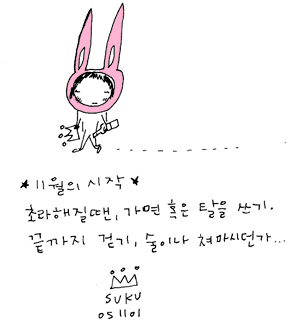 * 11월의 시작 *
초라해질땐, 가면 혹은 탈을 쓰기.
끝까지 걷기, 술이나 쳐마시던가...
SUKU
051101